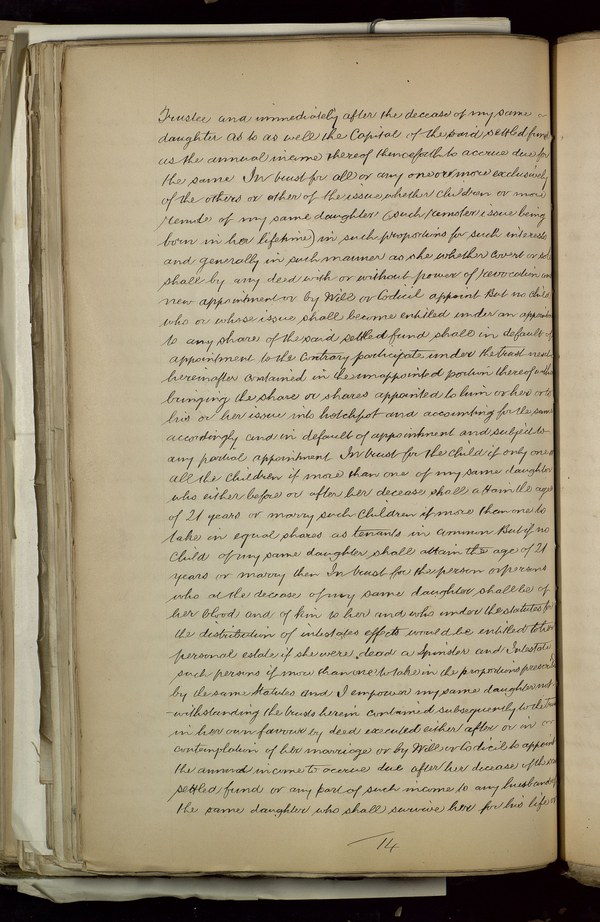 Trustee and immediately after the decease of my same
daughter as to as well the Capital of the said settled fund
as the annual income thereof thenceforth to accrue due for
the same In trust for all or any one or more exclusively
of the others or other of the issue whether children or more
remote of my same daughter (such remoter issue being
born in her lifetime) in such proportions for such interests
and generally in such manner as she whether covert or sole
shall by any deed with or without power of revocation and
new appointment or by Will or Codicil appoint But no child
who or whose issue shall become entitled under an appointment
to any share of the said settled fund shall in default of
appointment to the contrary participate under the trust next
hereinafter contained in the unappointed portion thereof without
bringing the share or shares appointed to him or her or to
his or her issue into hotchpot and accounting for the same
accordingly and in default of appointment and subject to
any partial appointment In trust for the child if only one or
all the children if more than one of my same daughter
who either before or after her decease shall attain the age
of 21 years or marry such children if more than one to
take in equal shares as tenants in common But if no
Child of my same daughter shall attain the age of 21
years or marry then In trust for the person or persons
who at the decease of my same daughter shall be of
her blood and of kin to her and who under the statutes for
the distribution of intestates effects would be entitled to her
personal estate if she were dead a Spinster and Intestate
such persons if more than one to take in the proportions prescribed
by the same Statutes and I empower my same daughter not-
-withstanding the trusts herein contained subsequently to the trust
in her own favour by deed executed either after or in
contemplation of her marriage or by Will or Codicil to appoint
the annual income to accrue due after her decease of the said
settled fund or any part of such income to any husband of
the same daughter who shall survive her for his life or
14